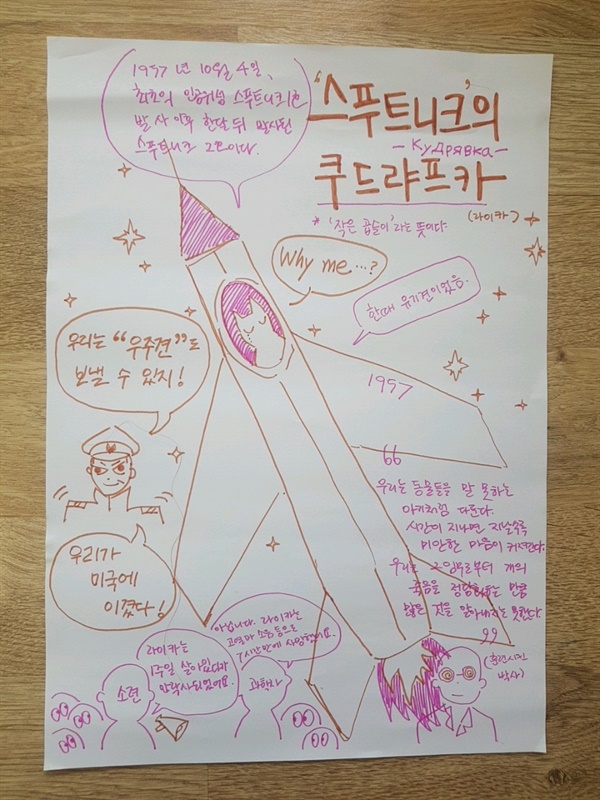 1957년 10월 4일,
최초의 인공위성 스푸트니크 1호
발사 이후 한달 뒤 발사된
스푸트니크 2호이다.
'스푸트니크'의
-Кудрявка-
쿠드랴프카
(라이카)
* '작은 곱슬이'라는 뜻이다.
Why me...?
한때 유기견이었음.
1957
우리는 "우주견"도
보낼 수 있지!
우리가
미국에
이겼다!
"
우리는 동물들을 말 못하는
아기처럼 다룬다.
시간이 지나면 지날수록
미안한 마음이 커져간다.
우리는 그 임무로부터 개의
죽음을 정당화하는 만큼
많은 것을 알아내지는 못했다.
"
(훈련시킨
박사)
라이카는
1주일 살아있다가
안락사되었어요.
소련
아닙니다. 라이카는
고열과 소음 등으로
7시간만에 사망했어요.
과학자